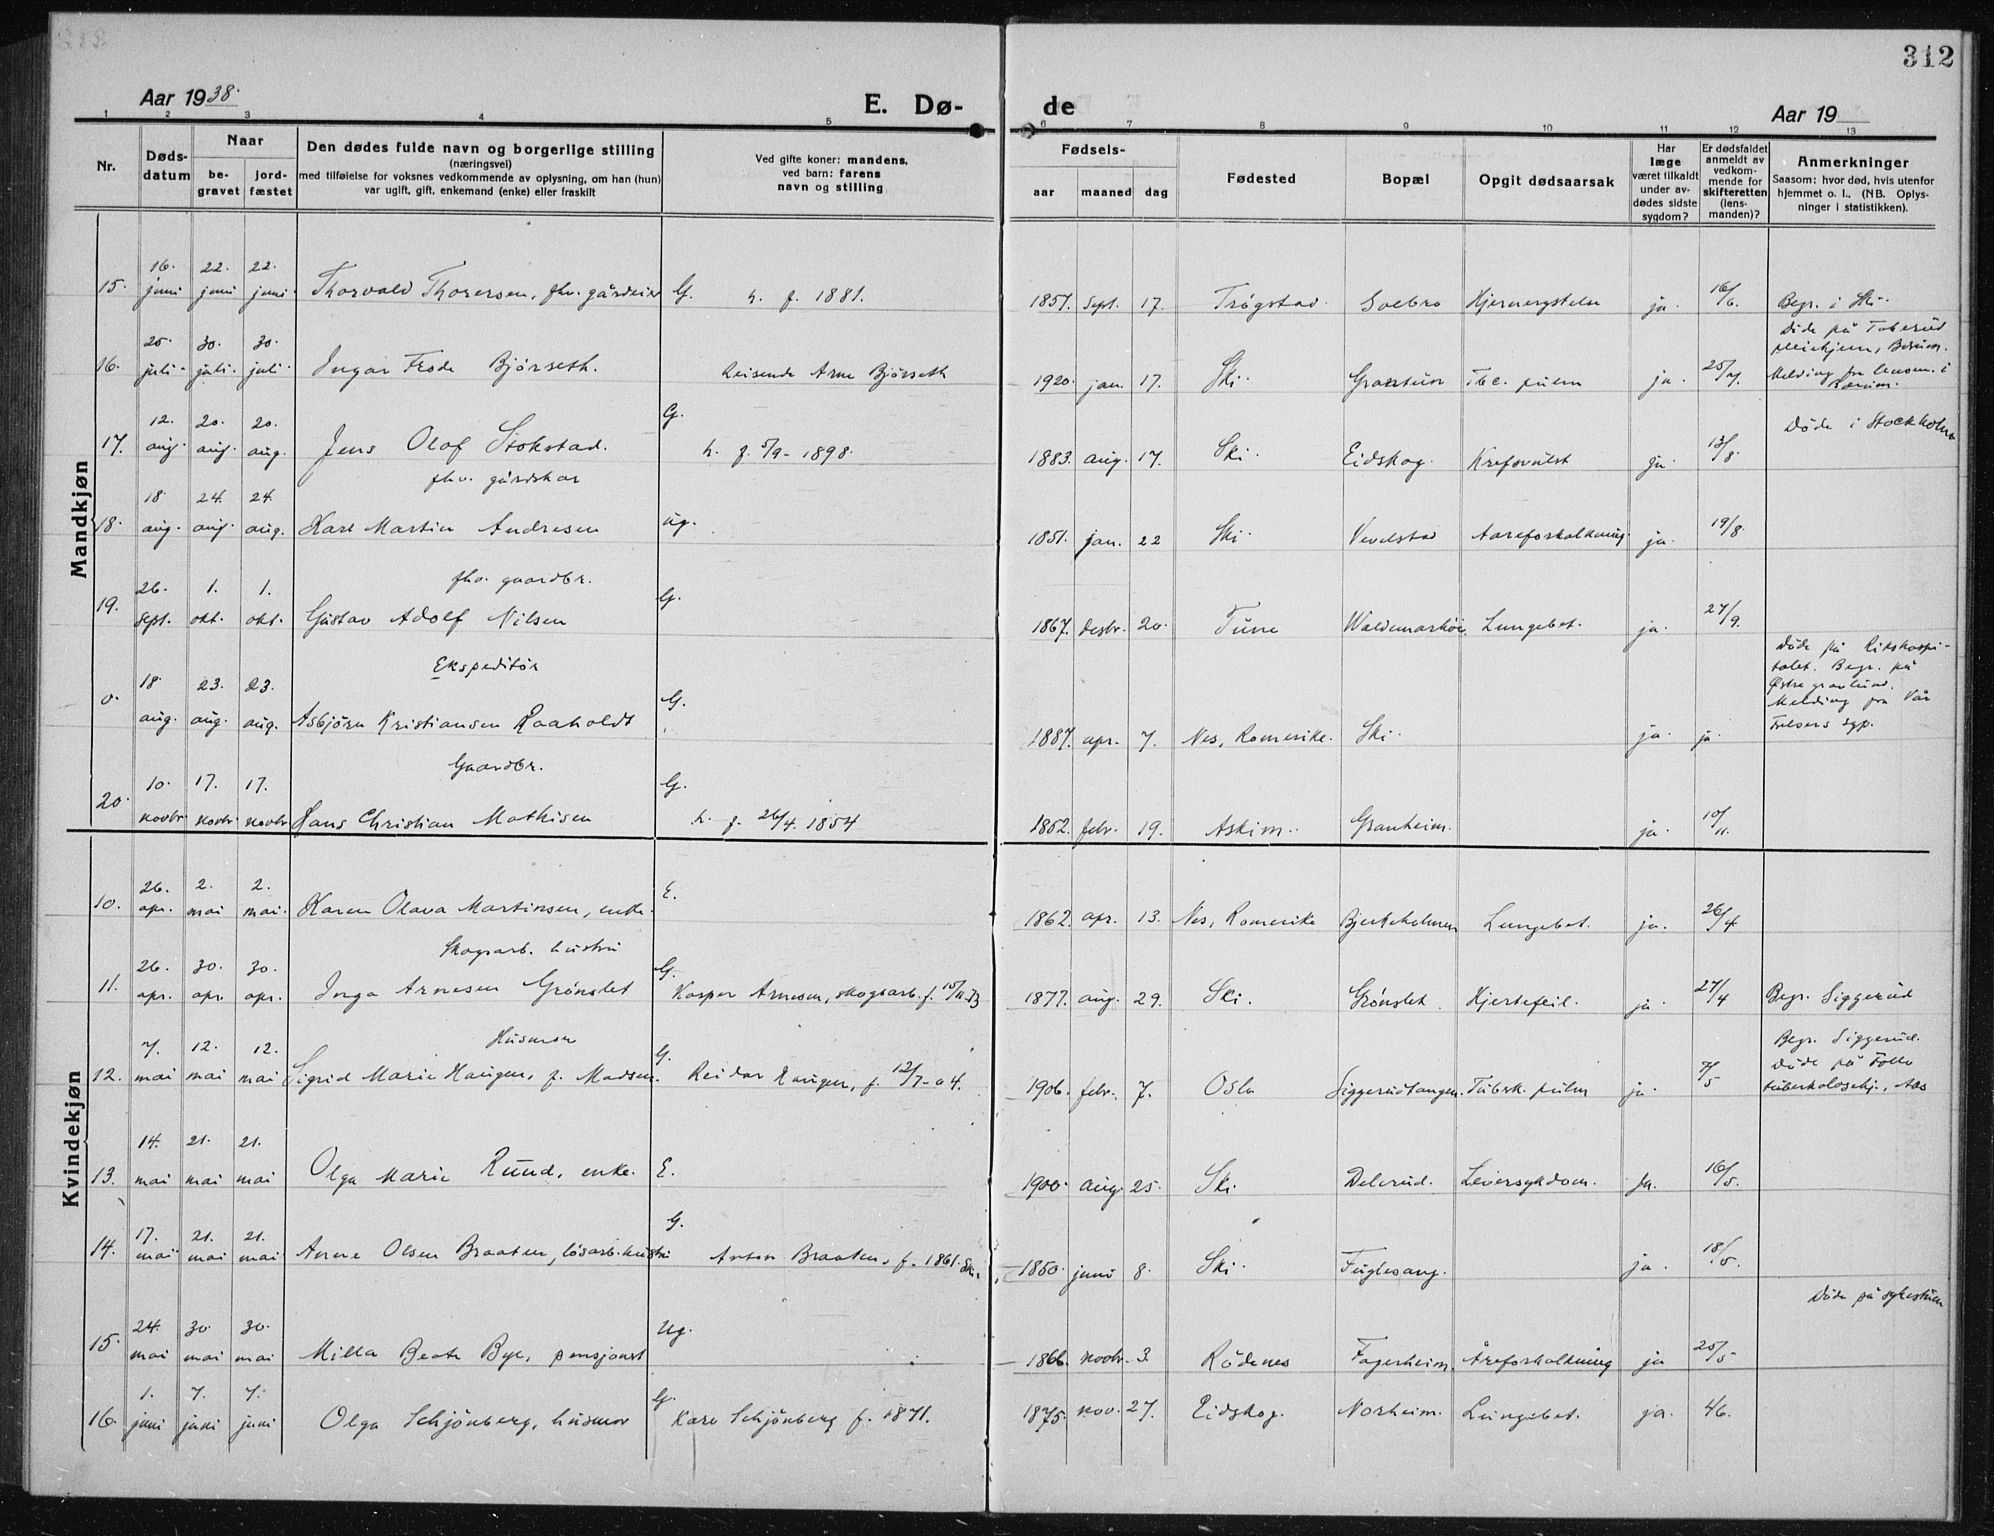 312
Aar 1938.
E. Dø-
de
Aar 19
1 2 3 4 5 6 7 8 9 10 11 12 13
Nr.
Døds-
datum
Naar
be-
gravet
jord-
fæstet
Den dødes fulde navn og borgerlige stilling
(næringsvei)
med tilføielse for voksnes vedkommende av oplysning, om han (hun)
var ugift, gift, enkemand (enke) eller fraskilt
Ved gifte koner: mandens,
ved barn: farens
navn og stilling
Fødsels-
aar maaned dag
Fødested
Bopæl
Opgit dødsaarsak
Har
læge
været tilkaldt
under av-
dødes sidste
sygdom?
Er dødsfaldet
anmeldt av
vedkom-
mende for
skifteretten
(lens-
manden)?
Anmerkninger
Saasom: hvor død, hvis utenfor
hjemmet o. l., (NB. Oplys-
ninger i statistikken).
Mandkjøn
15. 16. juni 22. juni 22. juni Thorvald Thoresen, fhv. gårdeier G. h. f. 1881. 1857. sept. 17. Trøgstad Solbro Hjernerystelse ja. 16/6. Begr. i Ski.
16. 25. juli 30. juli. 30. juli Ingar Frode Bjørseth. Reisende Arne Bjørseth 1920. jan. 17. Ski. Grantun Tbc. pulm ja. 25/7.
Døde på Toverud
pleiehjem, Bærum.
Melding fra lensm. i
Bærum.
17. 12. aug. 20. aug. 20. aug. Jens Olaf Stokstad. G. h. f. 5/9-1898. 1883. aug. 17. Ski. Eidskog. Kreftsvulst ja. 13/8. Døde i Stockholm
fhv. gårdskar
18. 18. aug. 24. aug. 24. aug. Karl Martin Andresen ug. 1851. jan. 22 Ski. Vevelstad Aareforkalkning. ja. 19/8.
fhv. gaardbr.
19. 26. sept. 1. okt. 1. okt. Gustav Adolf Nilsen G. 1867. desbr. 20. Tune Waldemarhøi. Lungebet. ja. 27/9.
Ekspeditør
0. 18. aug. 23. aug. 23. aug. Asbjørn Kristiansen Raaholdt G. 1887. apr. 7. Nes, Romerike. Ski. ja. ja.
Døde på Rikshospi-
talet. Begr. på
Østre gravlund.
Melding fra Vår
Frelsers sgp.
Gaardbr.
20. 10. novbr. 17. novbr. 17. novbr. Hans Christian Mathisen G. h. f. 26/4. 1854 1852. febr. 19. Askim. Granheim. ja. 10/11.
Kvindekjøn
10. 26. apr. 2. mai 2. mai. Karen Olava Martinsen, enke. E. 1862. apr. 13. Nes, Romerike Bjerkeholmen Lungebet. ja. 26/4
Skogsarb. hustru
11. 26. apr. 30. apr. 30. apr. Inga Arnesen Grønslet G. Kasper Arnesen, skogsarb. f. 1877. aug. 29. Ski. Grønslet. Hjertefeil. ja. 27/4 Begr. Siggerud
Husmor
12. 7. mai 12. mai 12. mai Sigrid Marie Haugen, f. Madsen. G. Reidar Haugen, f. 12/7-04. 1906. febr. 7. Oslo Siggerudtangen. Tubrk. pulm ja. 7/5
Begr. Siggerud.
Døde på Follo
tuberkulosehj., Aas
13. 14. mai 21. mai 21. mai Olga Marie Ruud, enke. E. 1900. aug. 25. Ski. Delerud. Leversykdom. Ja. 16/5.
14. 17. mai 21. mai 21. mai Anne Olsen Braaten, løsarb. hustru G. Anton Braaten, f. 1861. Ski. 1850. juni 8. Ski. Fuglesang. ja. 18/5.
15. 24. mai 30. mai 30. mai Milla Beate Bye, pensjonist Ug. 1866. novbr. 3. Rødenes Fagerheim. Åreforkalkning ja 25/5 Døde på sykestuen
16. 1. juni 7. juni 7. juni Olga Schjønberg, husmor G Karl Schjønberg f. 1871. 1875. nov. 27. Eidskog. Norheim. Lungebet. ja. 4/6.